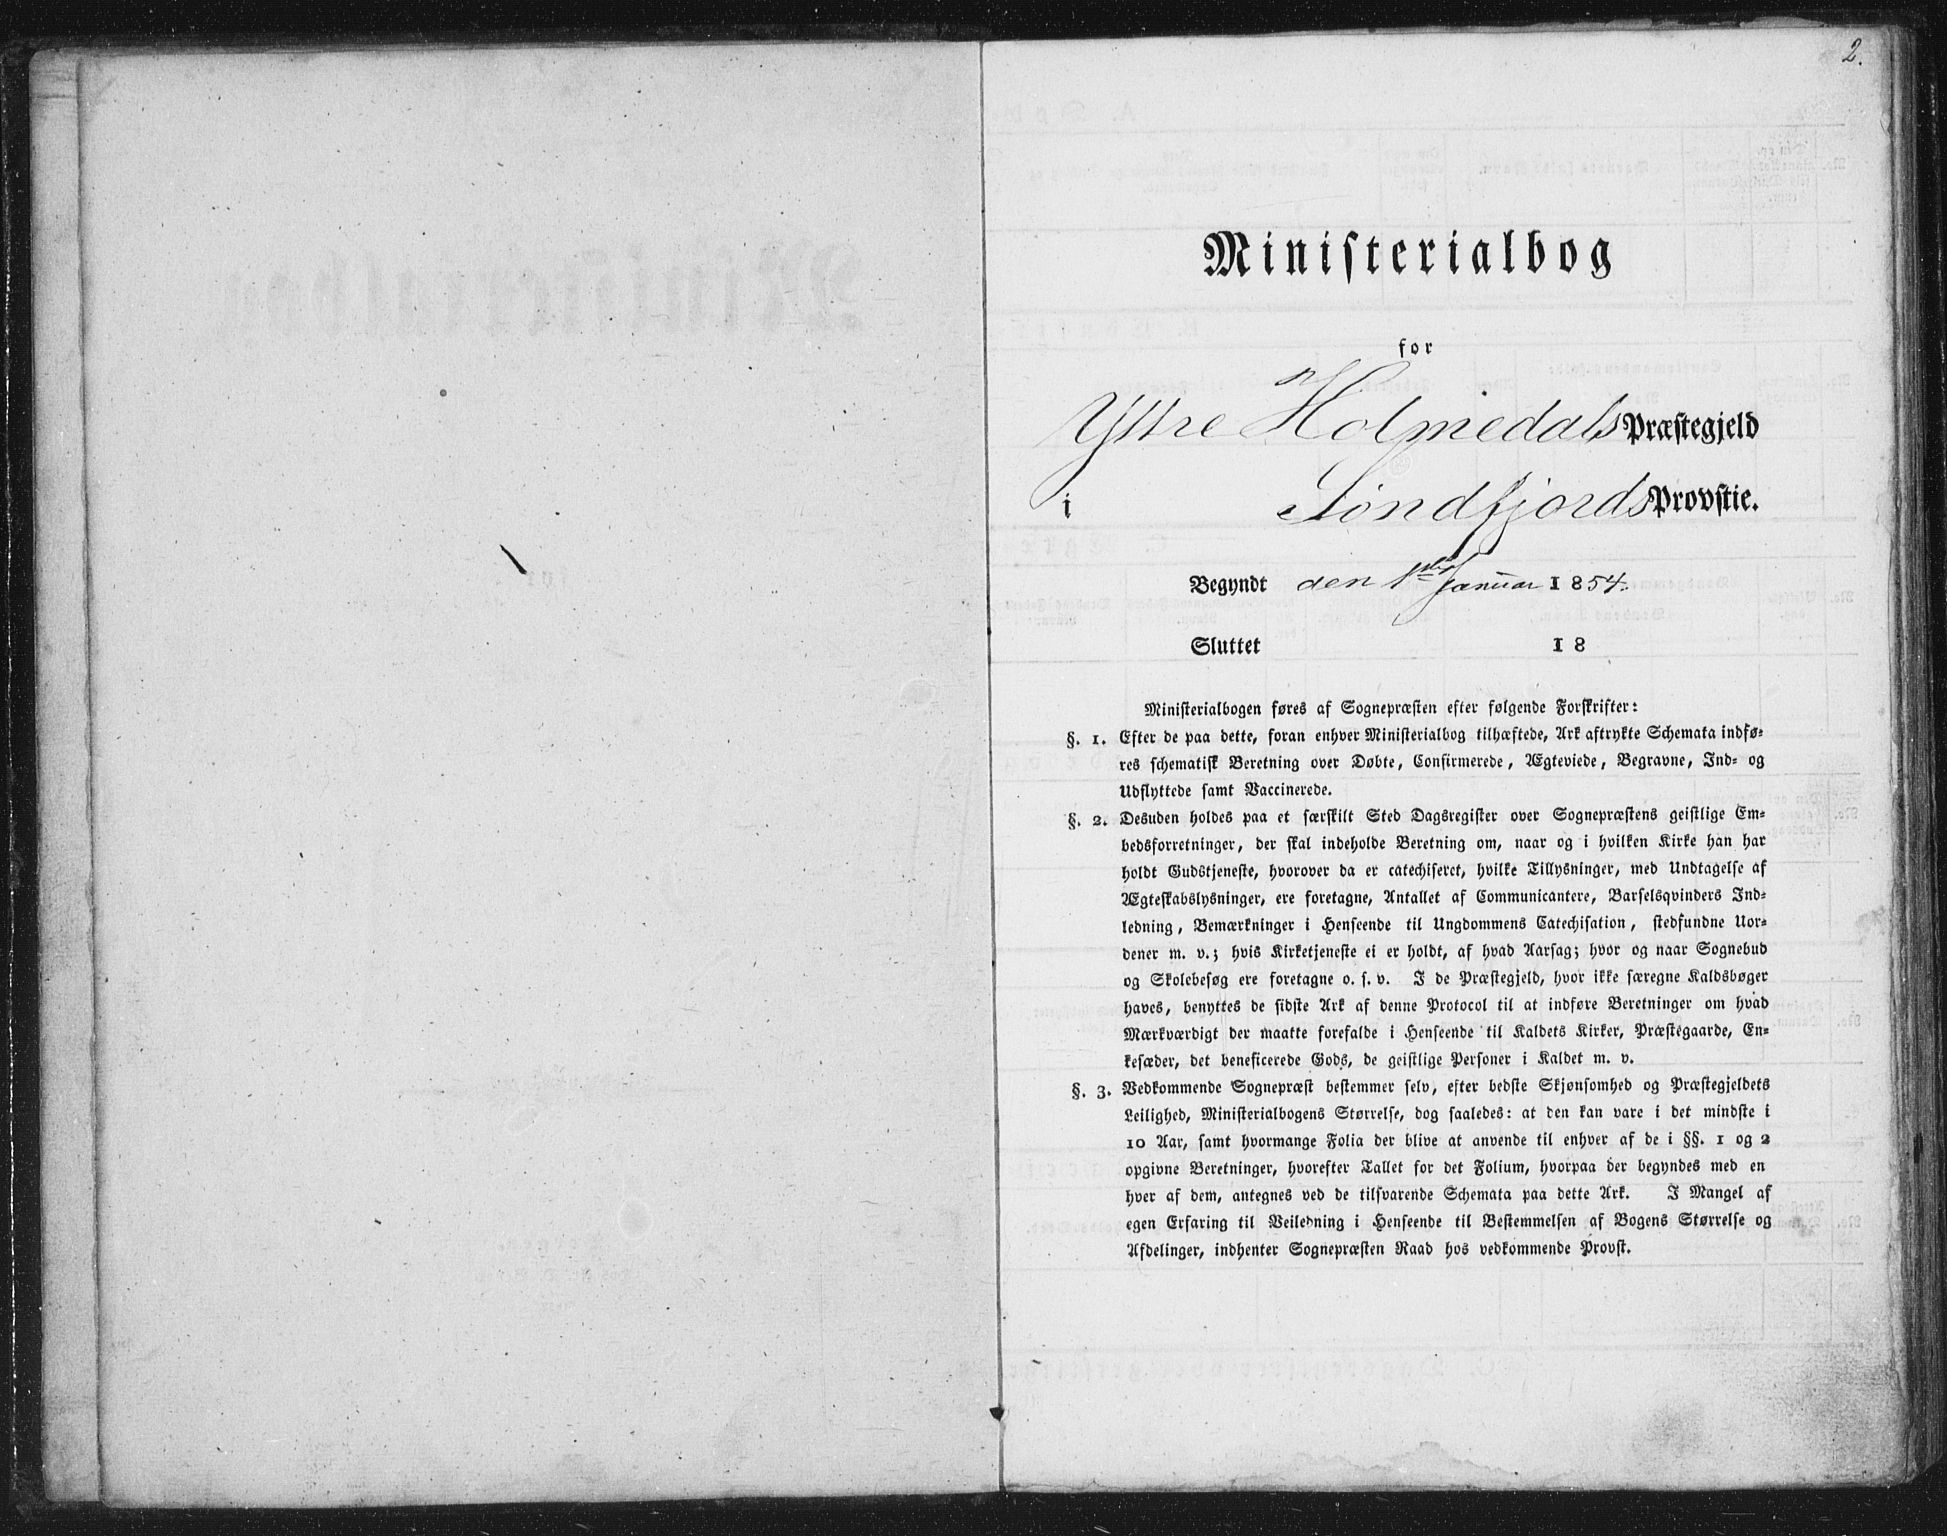 2.
Ministerialbog
for
Yttre Holmedals Præstegjeld
i Søndfjords Provstie.
Begyndt den 1ste Januar 1854.
Sluttet 18
Ministerialbogen føres af Sognepræsten efter følgende Forskrifter:
§. 1. Efter de paa dette, foran enhver Ministerialbog tilhæftede, Ark aftrykte Schemata indfø-
res schematisk Beretning over Døbte, Confirmerede, Ægteviede, Begravne, Ind- og
Udflyttede samt Vaccinerede.
§. 2. Desuden holdes paa et særskilt Sted Dagsregister over Sognepræstens geistlige Em-
bedsforretninger, der skal indeholde Beretning om, naar og i hvilken Kirke han har
holdt Gudstjeneste, hvorover da er catechiseret, hvilke Tillysninger, med Undtagelse af
Ægteskabslysninger, ere foretagne, Antallet af Communicantere, Barselsqvinders Ind-
ledning, Bemærkninger i Henseende til Ungdommens Catechisation, stedfundne Uor-
dener m. v.; hvis Kirketjeneste ei er holdt, af hvad Aarsag; hvor og naar Sognebud
og Skolebesøg ere foretagne o. s. v. I de Præstegjeld, hvor ikke særegne Kaldsbøger
haves, benyttes de sidste Ark af denne Protocol til at indføre Beretninger om hvad
Mærkværdigt der maatte forefalde i Henseende til Kaldets Kirker, Præstegaarde, En-
kesæder, det beneficerede Gods, de geistlige Personer i Kaldet m. v.
§. 3. Vedkommende Sognepræst bestemmer selv, efter bedste Skjønsomhed og Præstegjeldets
Leilighed, Ministerialbogens Størrelse, dog saaledes: at den kan vare i det mindste i
10 Aar, samt hvormange Folia der blive at anvende til enhver af de i §§. 1 og 2
opgivne Beretninger, hvorefter Tallet for det Folium, hvorpaa der begyndes med en
hver af dem, antegnes ved de tilsvarende Schemata paa dette Ark. I Mangel af
egen Erfaring til Veiledning i Henseende til Bestemmelsen af Bogens Størrelse og
Afdelinger, indhenter Sognepræsten Raad hos vedkommende Provst.